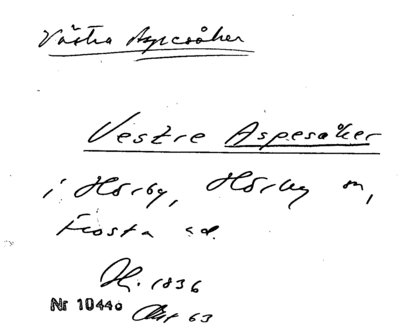 Västra Aspesåker
Vestre Aspesåker
i Hörby, Hörby m,
Frosta hd.
H. 1836
Nr 10440
Akt 63